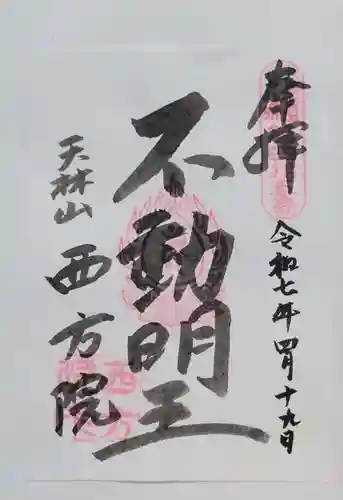 奉拝
令和七年四月十九日
不動明王
天林山
西方院